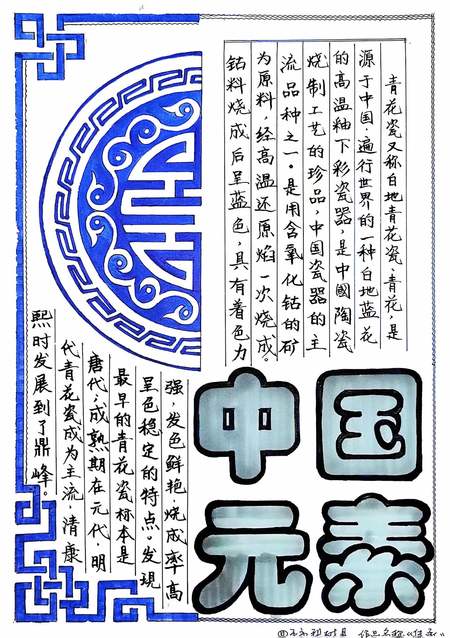 青花瓷又称白地青花瓷,青花,是
源于中国,遍行世界的一种白地蓝花
的高温釉下彩瓷器,是中國陶瓷
烧制工艺的珍品,中国瓷器的主
流品种之一。是用含氧化钴的矿
为原料,经高温还原焰一次烧成。
钴料烧成后呈蓝色,具有着色力
强,发色鲜艳,烧成率高
呈色稳定的特点。发现
最早的青花瓷标本是
唐代,成熟期在元代,明
代青花瓷成为主流,清康
熙时发展到了鼎峰。
中国
元素